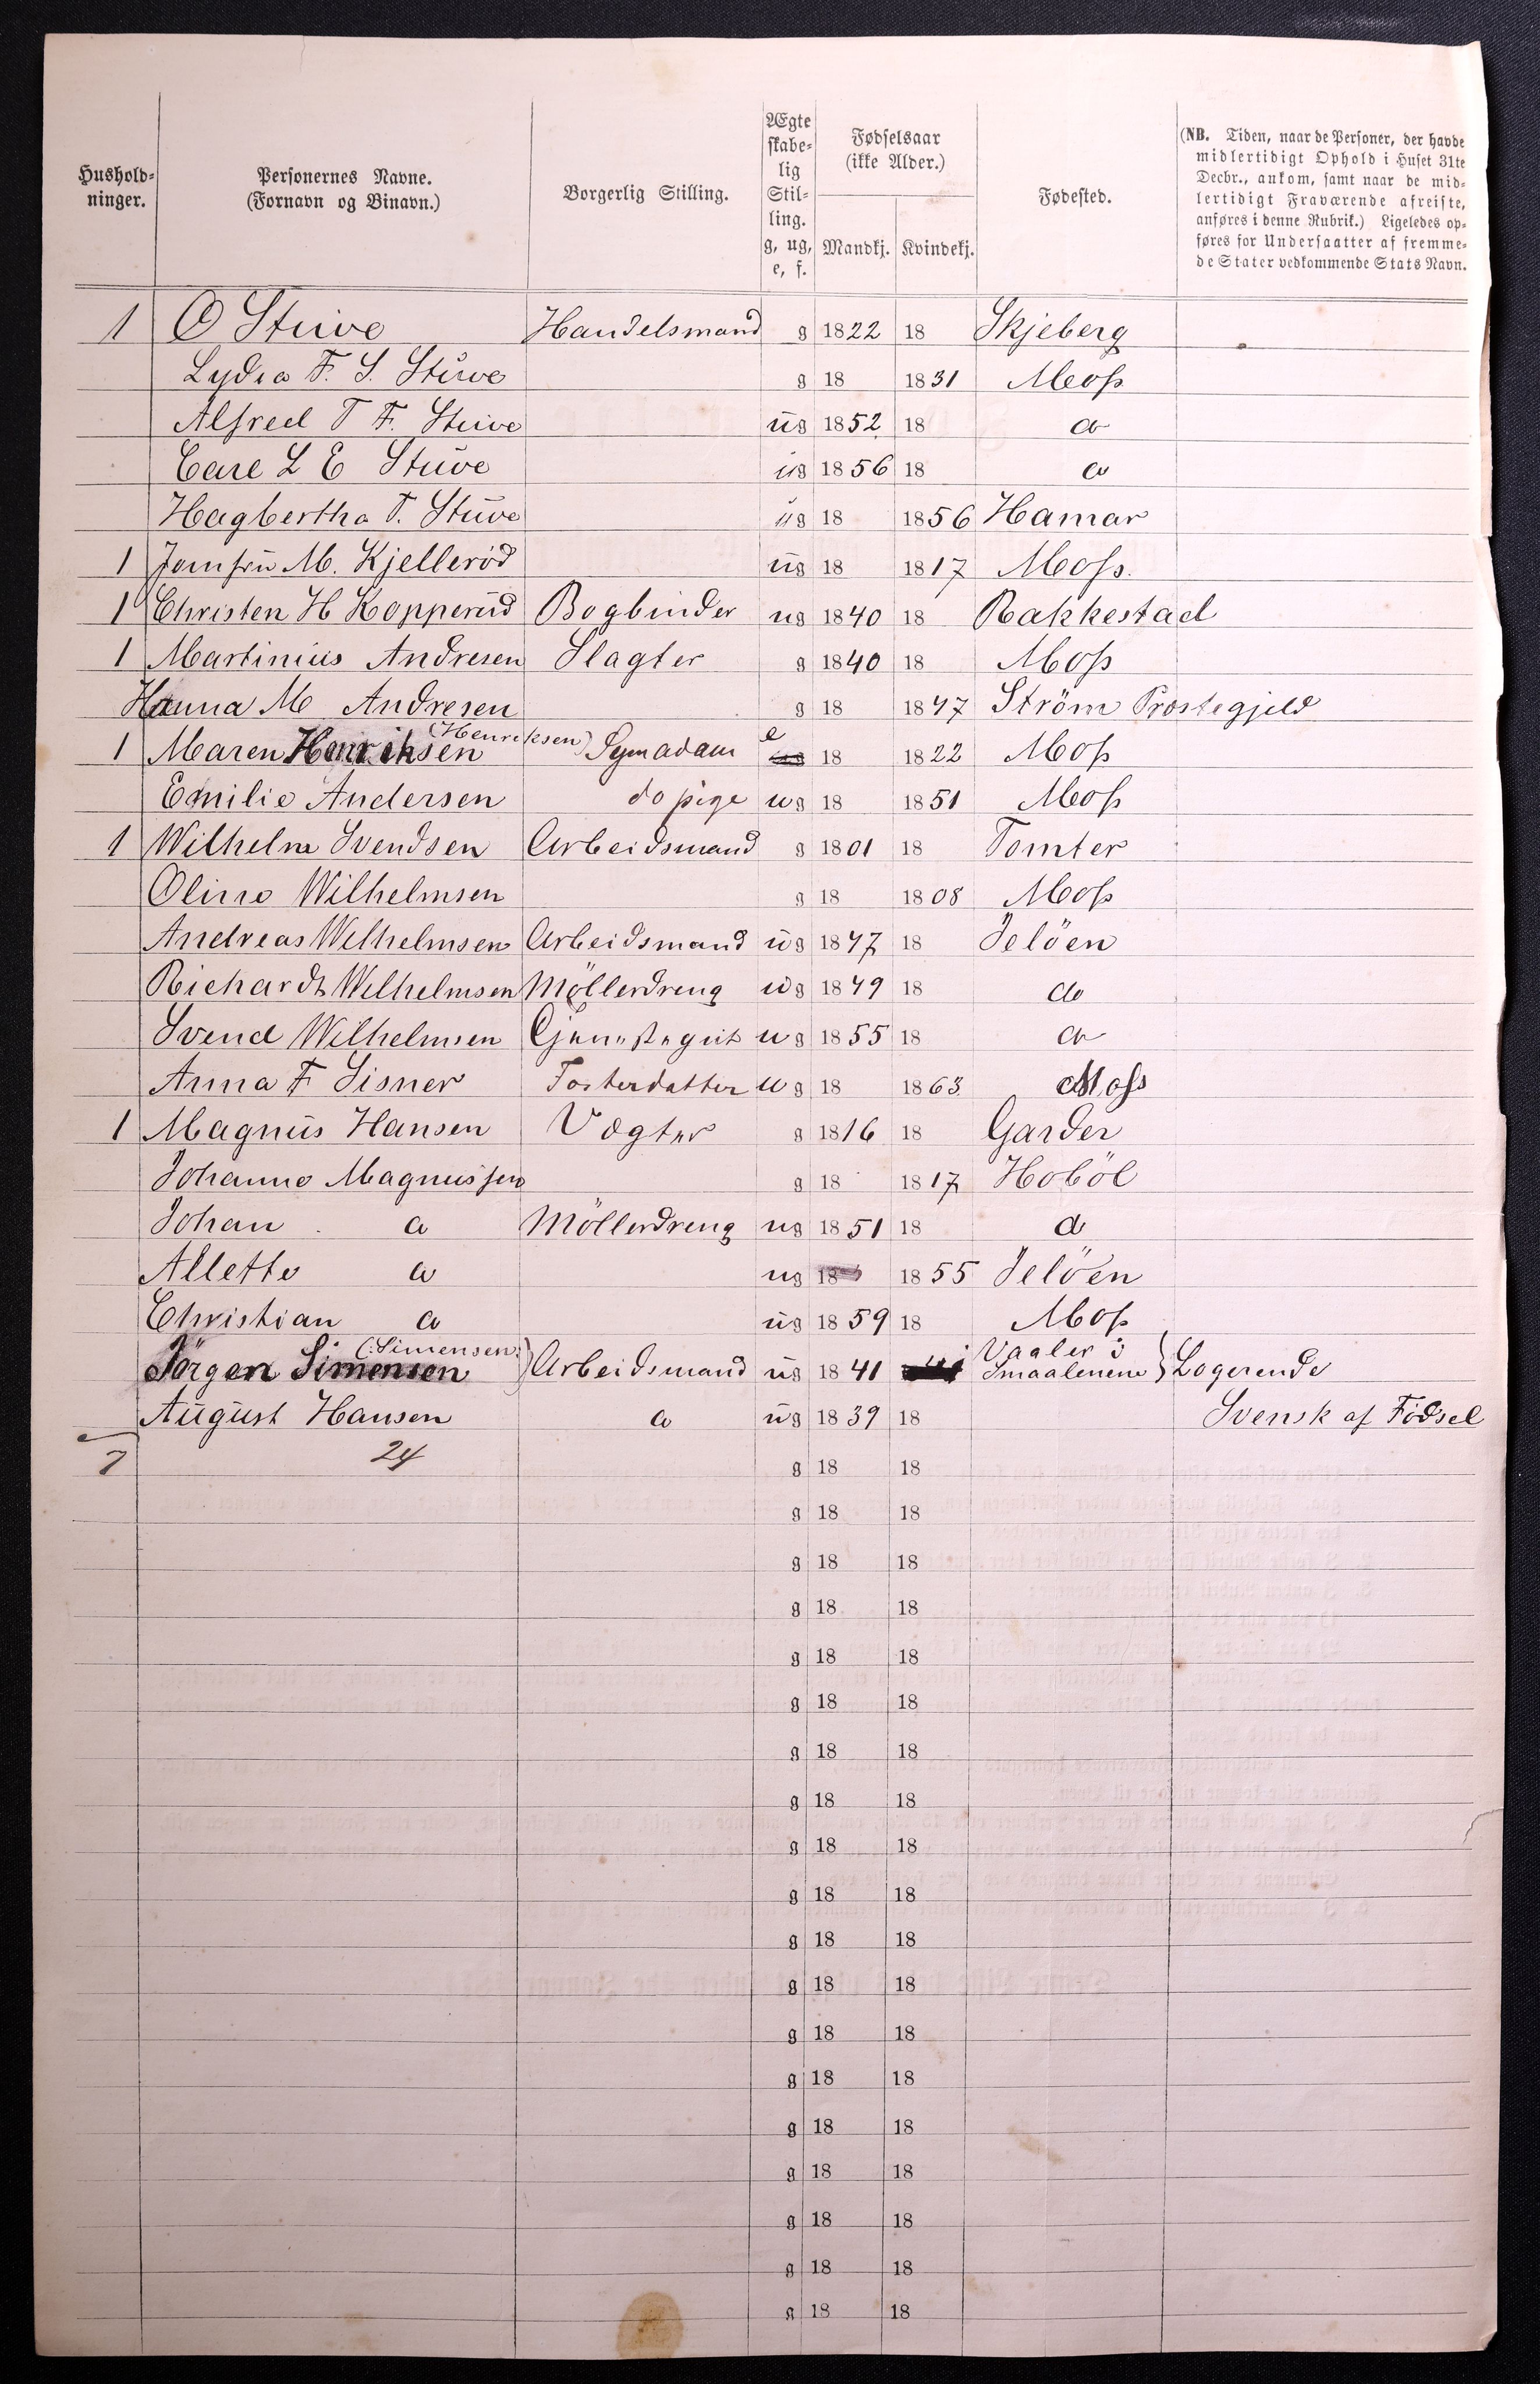 Hushold-
ninger.
Personernes Navne.
(Fornavn og Binavn.)
Borgerlig Stilling.
Ægte
skabe-
lig
Stil-
ling.
g, ug,
e, f.
Fødselsaar
(ikke Alder.)
Mandkj. Kvindekj.
Fødested.
(NB. Tiden, naar de Personer, der havde
midlertidigt Ophold i Huset 31te
Decbr., ankom, samt naar de mid-
lertidigt Fraværende afreiste,
anføres i denne Rubrik.) Ligeledes op-
føres for Undersaatter af fremme-
de Stater vedkommende Stats Navn.
1 O Stüve Handelsmand g 1822 18 Skjeberg
Lydia F. S. Stüve g 18 1831 Moss
Alfred T F. Stüve üg 1852 18 do
Carl L E Stüve üg 1856 18 do
Hagbertha T. Stüve üg 18 1856 Hamar
1 Jomfrü M. Kjelleröd üg 18 1817 Moss.
1 Christen H Kopperüd Bogbinder ug 1840 18 Rakkestad
1 Martiniüs Andresen Slagter g 1840 18 Moss
Hanna M Andresen g 18 1847 Ström Præstegjeld
1 Maren Henriksen (Henriksen) Symadam e 18 1822 Moss
Emilie Andersen do pige ug 18 1851 Moss
1 Wilhelm Svendsen Arbeidsmand g 1801 18 Tomter
Oline Wilhelmsen g 18 1808 Moss
Andreas Wilhelmsen Arbeidsmand üg 1847 18 Jelöen
Richardt Wilhelmsen Möllerdreng üg 1849 18 do
Svend Wilhelmsen ug 1855 18 do
Anna F Sisner Fosterdatter ug 18 1863 Moss
1 Magnüs Hansen Vægter g 1816 18 Garder
Johanne Magnussen g 18 1817 Hoböl
Johan do Möllerdreng ug 1851 18 do
Allette do ug 18 1855 Jelöen
Christian do üg 1859 18 Moss
Jörgen Simensen (Simensen) Arbeidsmand üg 1841 Vaaler i Smaalenene } Logerende
Aügüst Hansen do üg 1839 18 Svensk af Födsel
7 24 g 18 18
g 18 18
g 18 18
g 18 18
g 18 18
g 18 18
g 18 18
g 18 18
g 18 18
g 18 18
g 18 18
g 18 18
g 18 18
g 18 18
g 18 18
g 18 18
g 18 18
g 18 18
g 18 18